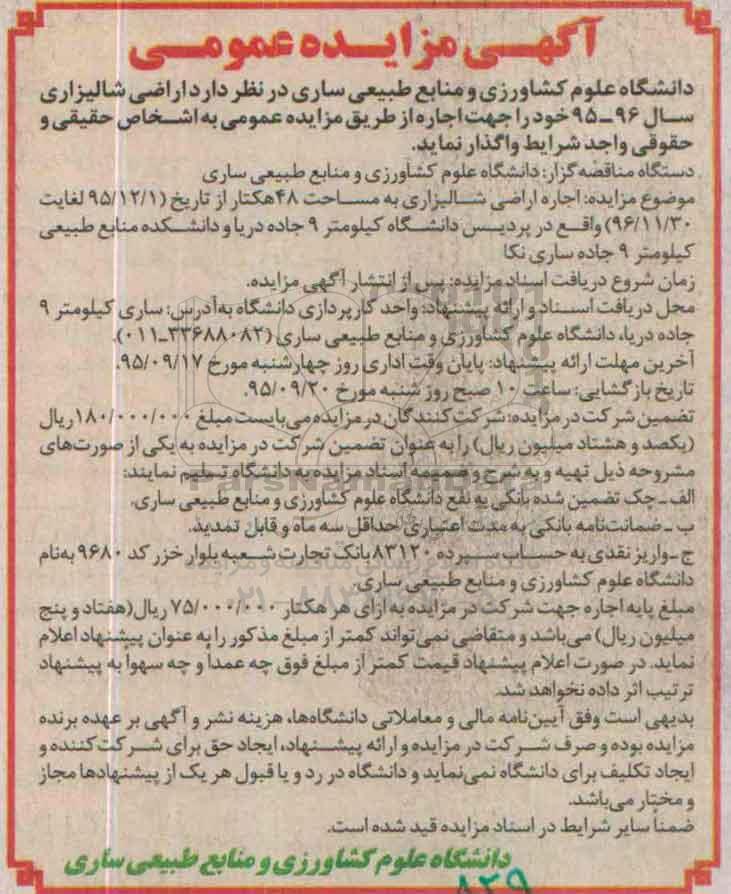 آگهی مزایده عمومی
دانشگاه علوم کشاورزی و منابع طبیعی ساری در نظر دارد اراضی شالیزاری
سال ۹۶-۹۵ خود را جهت اجاره از طریق مزایده عمومی به اشخاص حقیقی و
حقوقی واجد شرایط واگذار نماید.
دستگاه مناقصه گزار: دانشگاه علوم کشاورزی و منابع طبیعی ساری
موضوع مزایده: اجاره اراضی شالیزاری به مساحت ۴۸هکتار از تاریخ (۹۵/۱۲/۱ لغایت
۹۶/۱۱/۳۰) واقع در پردیس دانشگاه کیلومتر ۹ جاده دریا و دانشکده منابع طبیعی
کیلومتر ۹ جاده ساری نکا
زمان شروع دریافت اسناد مزایده: پس از انتشار آگهی مزایده.
محل دریافت اسناد و ارائه پیشنهاد: واحد کارپردازی دانشگاه به آدرس: ساری کیلومتر ۹
جاده دریا، دانشگاه علوم کشاورزی و منابع طبیعی ساری (۳۳۶۸۸۰۸۲-۰۱۱).
آخرین مهلت ارائه پیشنهاد: پایان وقت اداری روز چهارشنبه مورخ ۹۵/۰۹/۱۷.
تاریخ بازگشایی: ساعت ۱۰ صبح روز شنبه مورخ ۹۵/۰۹/۲۰.
تضمین شرکت در مزایده: شرکت کنندگان در مزایده می‌بایست مبلغ ۱۸۰/۰۰۰/۰۰۰ریال
(یکصد و هشتاد میلیون ریال) را به عنوان تضمین شرکت در مزایده به یکی از صورت‌های
مشروحه ذیل تهیه و به شرح و ضمیمه اسناد مزایده به دانشگاه تسلیم نمایند:
الف- چک تضمین شده بانکی به نفع دانشگاه علوم کشاورزی و منابع طبیعی ساری.
ب- ضمانت‌نامه بانکی به مدت اعتباری حداقل سه ماه و قابل تمدید.
ج- واریز نقدی به حساب سپرده ۸۳۱۲۰ بانک تجارت شعبه بلوار خزر کد ۹۶۸۰ به‌نام
دانشگاه علوم کشاورزی و منابع طبیعی ساری.
مبلغ پایه اجاره جهت شرکت در مزایده به ازای هر هکتار ۷۵/۰۰۰/۰۰۰ ریال(هفتاد و پنج
میلیون ریال) می‌باشد و متقاضی نمی‌تواند کمتر از مبلغ مذکور را به عنوان پیشنهاد اعلام
نماید. در صورت اعلام پیشنهاد قیمت کمتر از مبلغ فوق چه عمداً و چه سهواً به پیشنهاد
ترتیب اثر داده نخواهد شد.
بدیهی است وفق آیین‌نامه مالی و معاملاتی دانشگاه‌ها، هزینه نشر و آگهی بر عهده برنده
مزایده بوده و صرف شرکت در مزایده و ارائه پیشنهاد، ایجاد حق برای شرکت کننده و
ایجاد تکلیف برای دانشگاه نمی‌نماید و دانشگاه در رد و یا قبول هر یک از پیشنهادها مجاز
و مختار می‌باشد.
ضمناً سایر شرایط در اسناد مزایده قید شده است.
دانشگاه علوم کشاورزی و منابع طبیعی ساری
۸۲۹